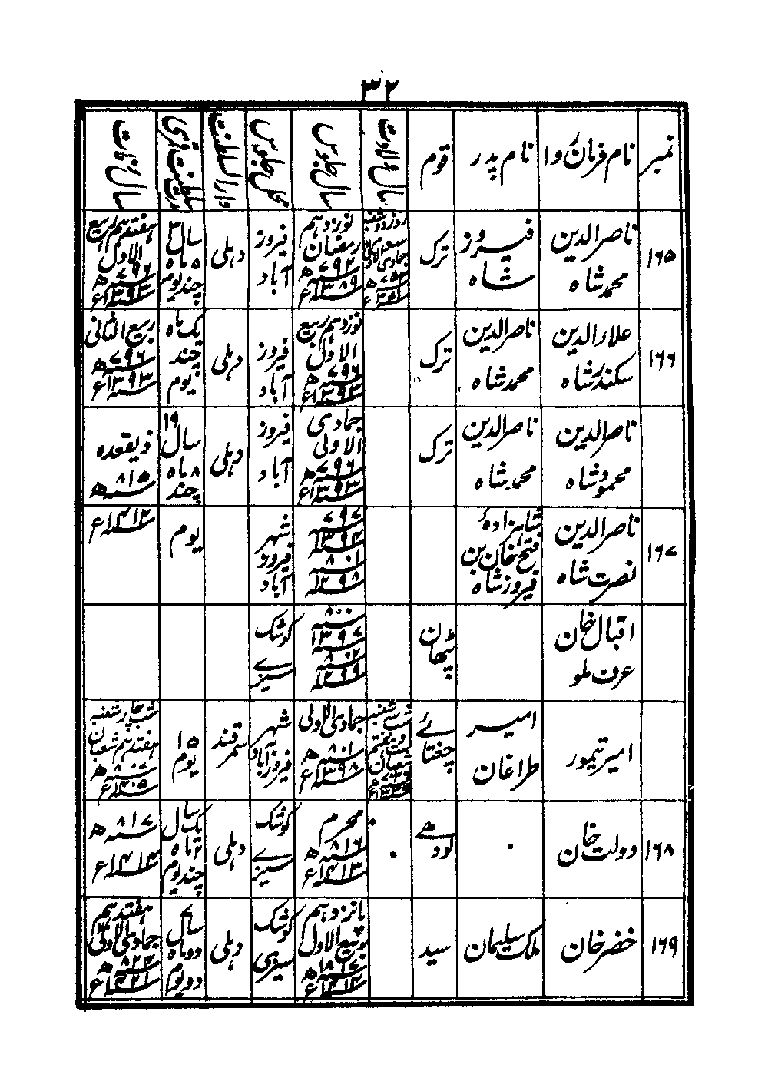 ۳۲
نمبر نام فرمان روا نام پدر قوم سال ولادت سال جلوس محل جلوس دارالسلطنت سلطنت قمری سال وفات
۱۶۵ ناصر الدین محمد شاہ فیروز شاہ ترک نوزدہم رمضان ۷۹۲ھ ۱۳۸۹ء فیروز آباد دہلی ۳ سال ۵ ماہ چند یوم ہفتدہم ربیع الاول ۷۹۶ھ ۱۳۹۳ء
۱۶۶ علاء الدین سکندر شاہ ناصر الدین محمد شاہ ترک نوزدہم ربیع الاول ۷۹۶ھ ۱۳۹۳ء فیروز آباد دہلی یک ماہ چند یوم ربیع الثانی ۷۹۶ھ ۱۳۹۳ء
ناصر الدین محمود شاہ ناصر الدین محمد شاہ ترک جمادی الاولی ۷۹۶ھ ۱۳۹۳ء فیروز آباد دہلی ۱۹ سال ۸ ماہ چند ذیقعدہ ۸۱۵ھ
۱۶۷ ناصر الدین نصرت شاہ شاہزادہ فتح خان بن فیروز شاہ ۷۹۷ ۱۳۹۴ ۸۰۱ ۱۳۹۸ شہر فیروز آباد یوم ۱۴۱۲ء
اقبال خان عرف ملو پٹھان ۸۰۰ ۱۳۹۷ ۸۰۲ ۱۳۹۹ کوشک سیری
امیر تیمور امیر طراغان چغتائے جمادی الاولی ۸۰۱ھ ۱۳۹۸ء شہر فیروز آباد سمرقند ۱۵ یوم شب چہار شنبہ ہفتدہم شعبان
۱۶۸ دولت خان ۰ لودھے ۰ محرم ۸۱۶ھ ۱۴۱۳ء کوشک سیری دہلی یک سال ۲ ماہ چند یوم ۸۱۷ھ ۱۴۱۴ء
۱۶۹ خضر خان ملک سلیمان سید پانزدہم ربیع الاول ۸۱۷ھ کوشک سیری دہلی سال دو ماہ دو یوم ہفتدہم جمادی الاولی